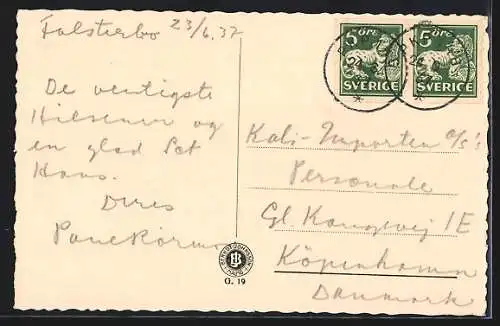 Falsterbo 23/6.37
De venligste
Hilsener og
en glad Sct
Hans.
Deres
5 ÖRE
SVERIGE
5 ÖRE
SVERIGE
Kali-Importen A/S's
Personale
Gl. Kongevej 1E
Köpenhamn
Danmark
G. 19